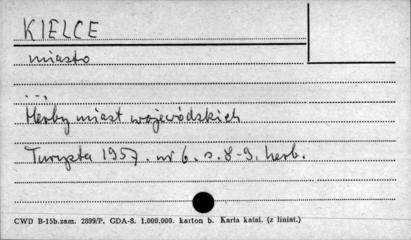 KIELCE
miasto
...
Herby miast wojewódzkich
Turysta 1957. nr 6. s. 8-9. herb.
CWD B-15b.zam. 2899/P. GDA-8. 1.000.000. karton b. Karta katal. (z liniat.)